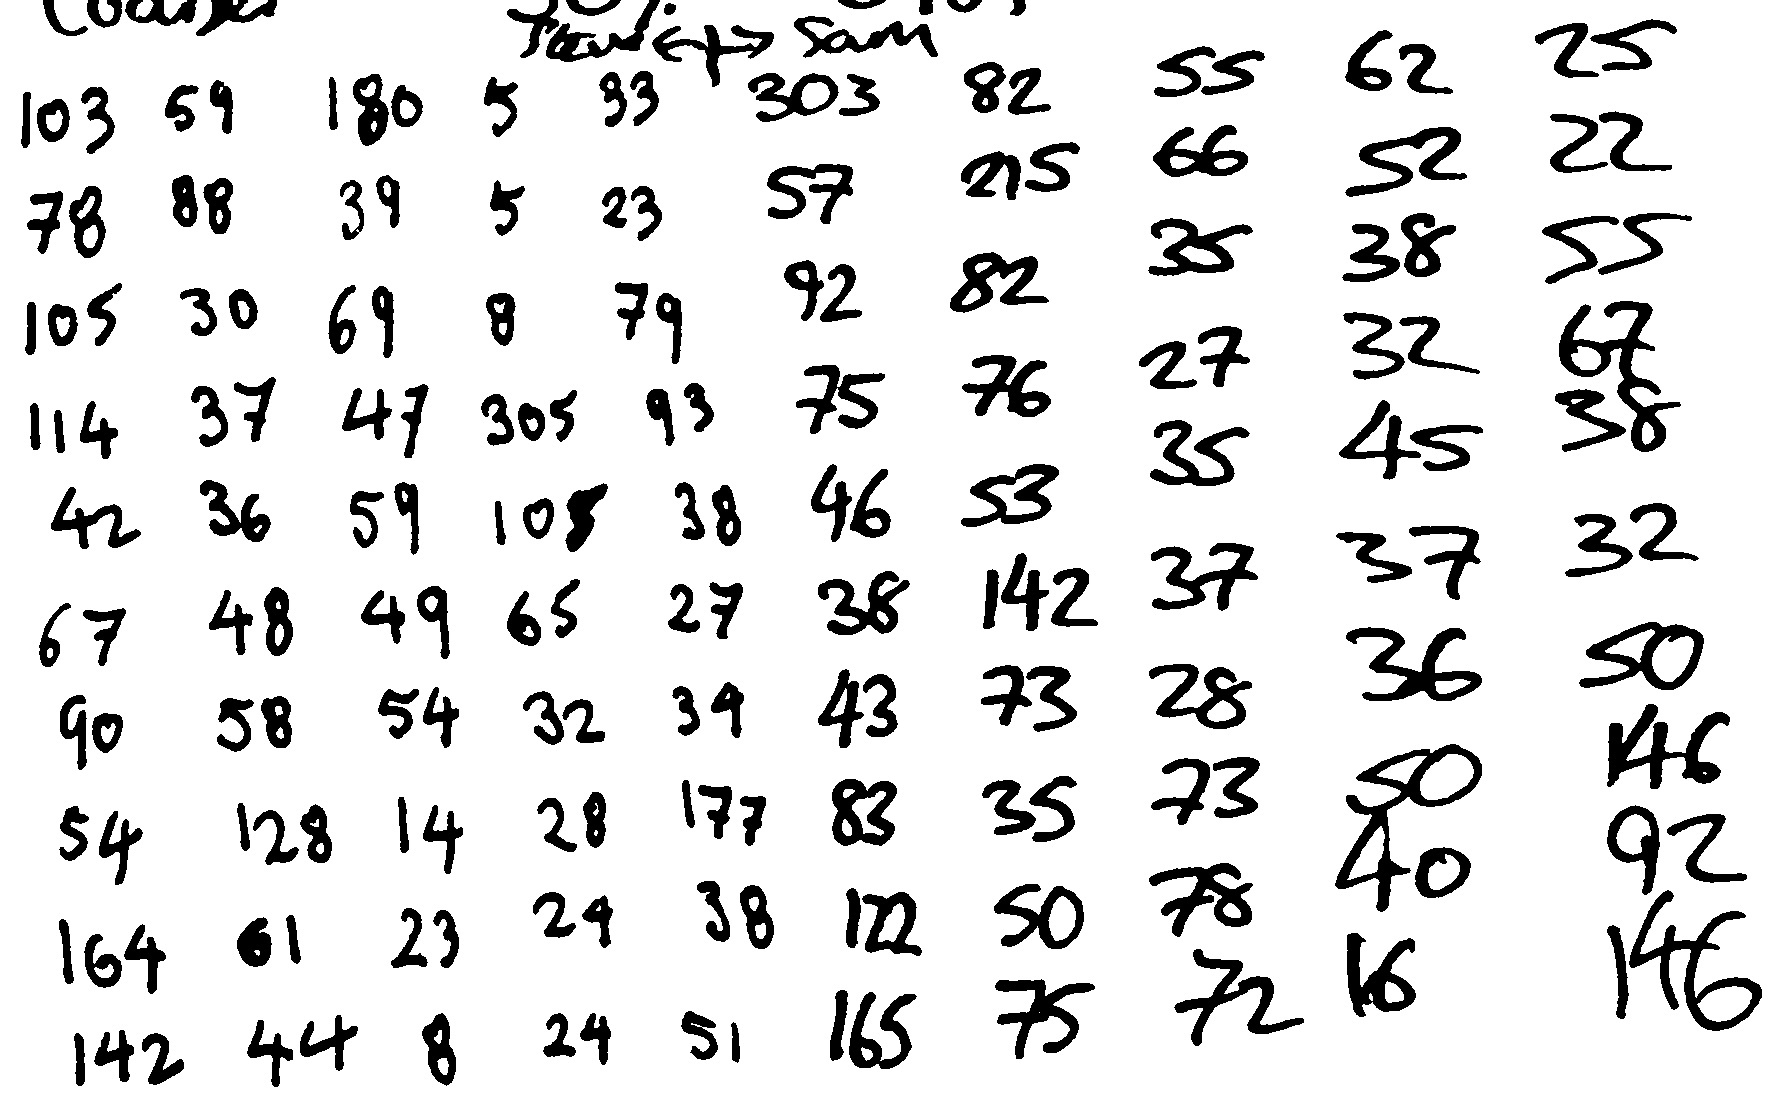 <-|-> Sam
103 59 180 5 33 303 82 55 62 25
78 88 39 5 23 57 215 66 52 22
105 30 69 8 79 92 82 35 38 55
114 37 47 305 93 75 76 27 32 67
42 36 59 105 38 46 53 35 45 38
67 48 49 65 27 38 142 37 37 32
90 58 54 32 39 43 73 28 36 50
54 128 14 28 177 83 35 73 50 146
164 61 23 29 38 122 50 78 40 92
142 44 8 24 51 165 75 72 16 146